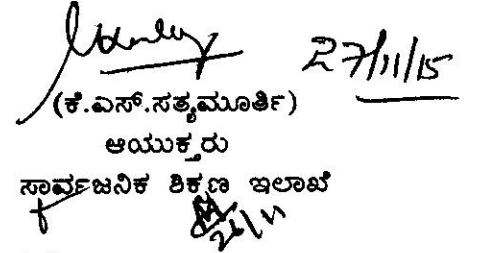 27/11/15
(ಕೆ.ಎಸ್.ಸತ್ಯಮೂರ್ತಿ)
ಆಯುಕ್ತರು
ಸಾರ್ವಜನಿಕ ಶಿಕ್ಷಣ ಇಲಾಖೆ
26/11